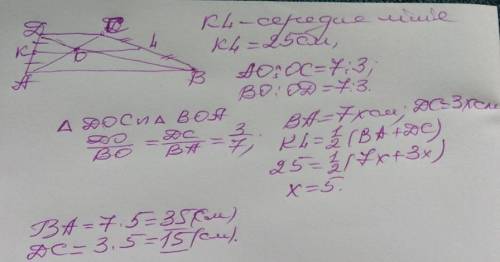 D C
K O 4
A B
K4 - середня лінія
K4 = 25 см,
AO:OC = 7:3;
BO:OD = 7:3.
△ DOC и △ BOA
DO/BO = DC/BA = 3/7;
BA = 7x см; DC = 3x см
K4 = 1/2 (BA + DC)
25 = 1/2 (7x + 3x)
x = 5.
BA = 7 · 5 = 35 (см)
DC = 3 · 5 = 15 (см).